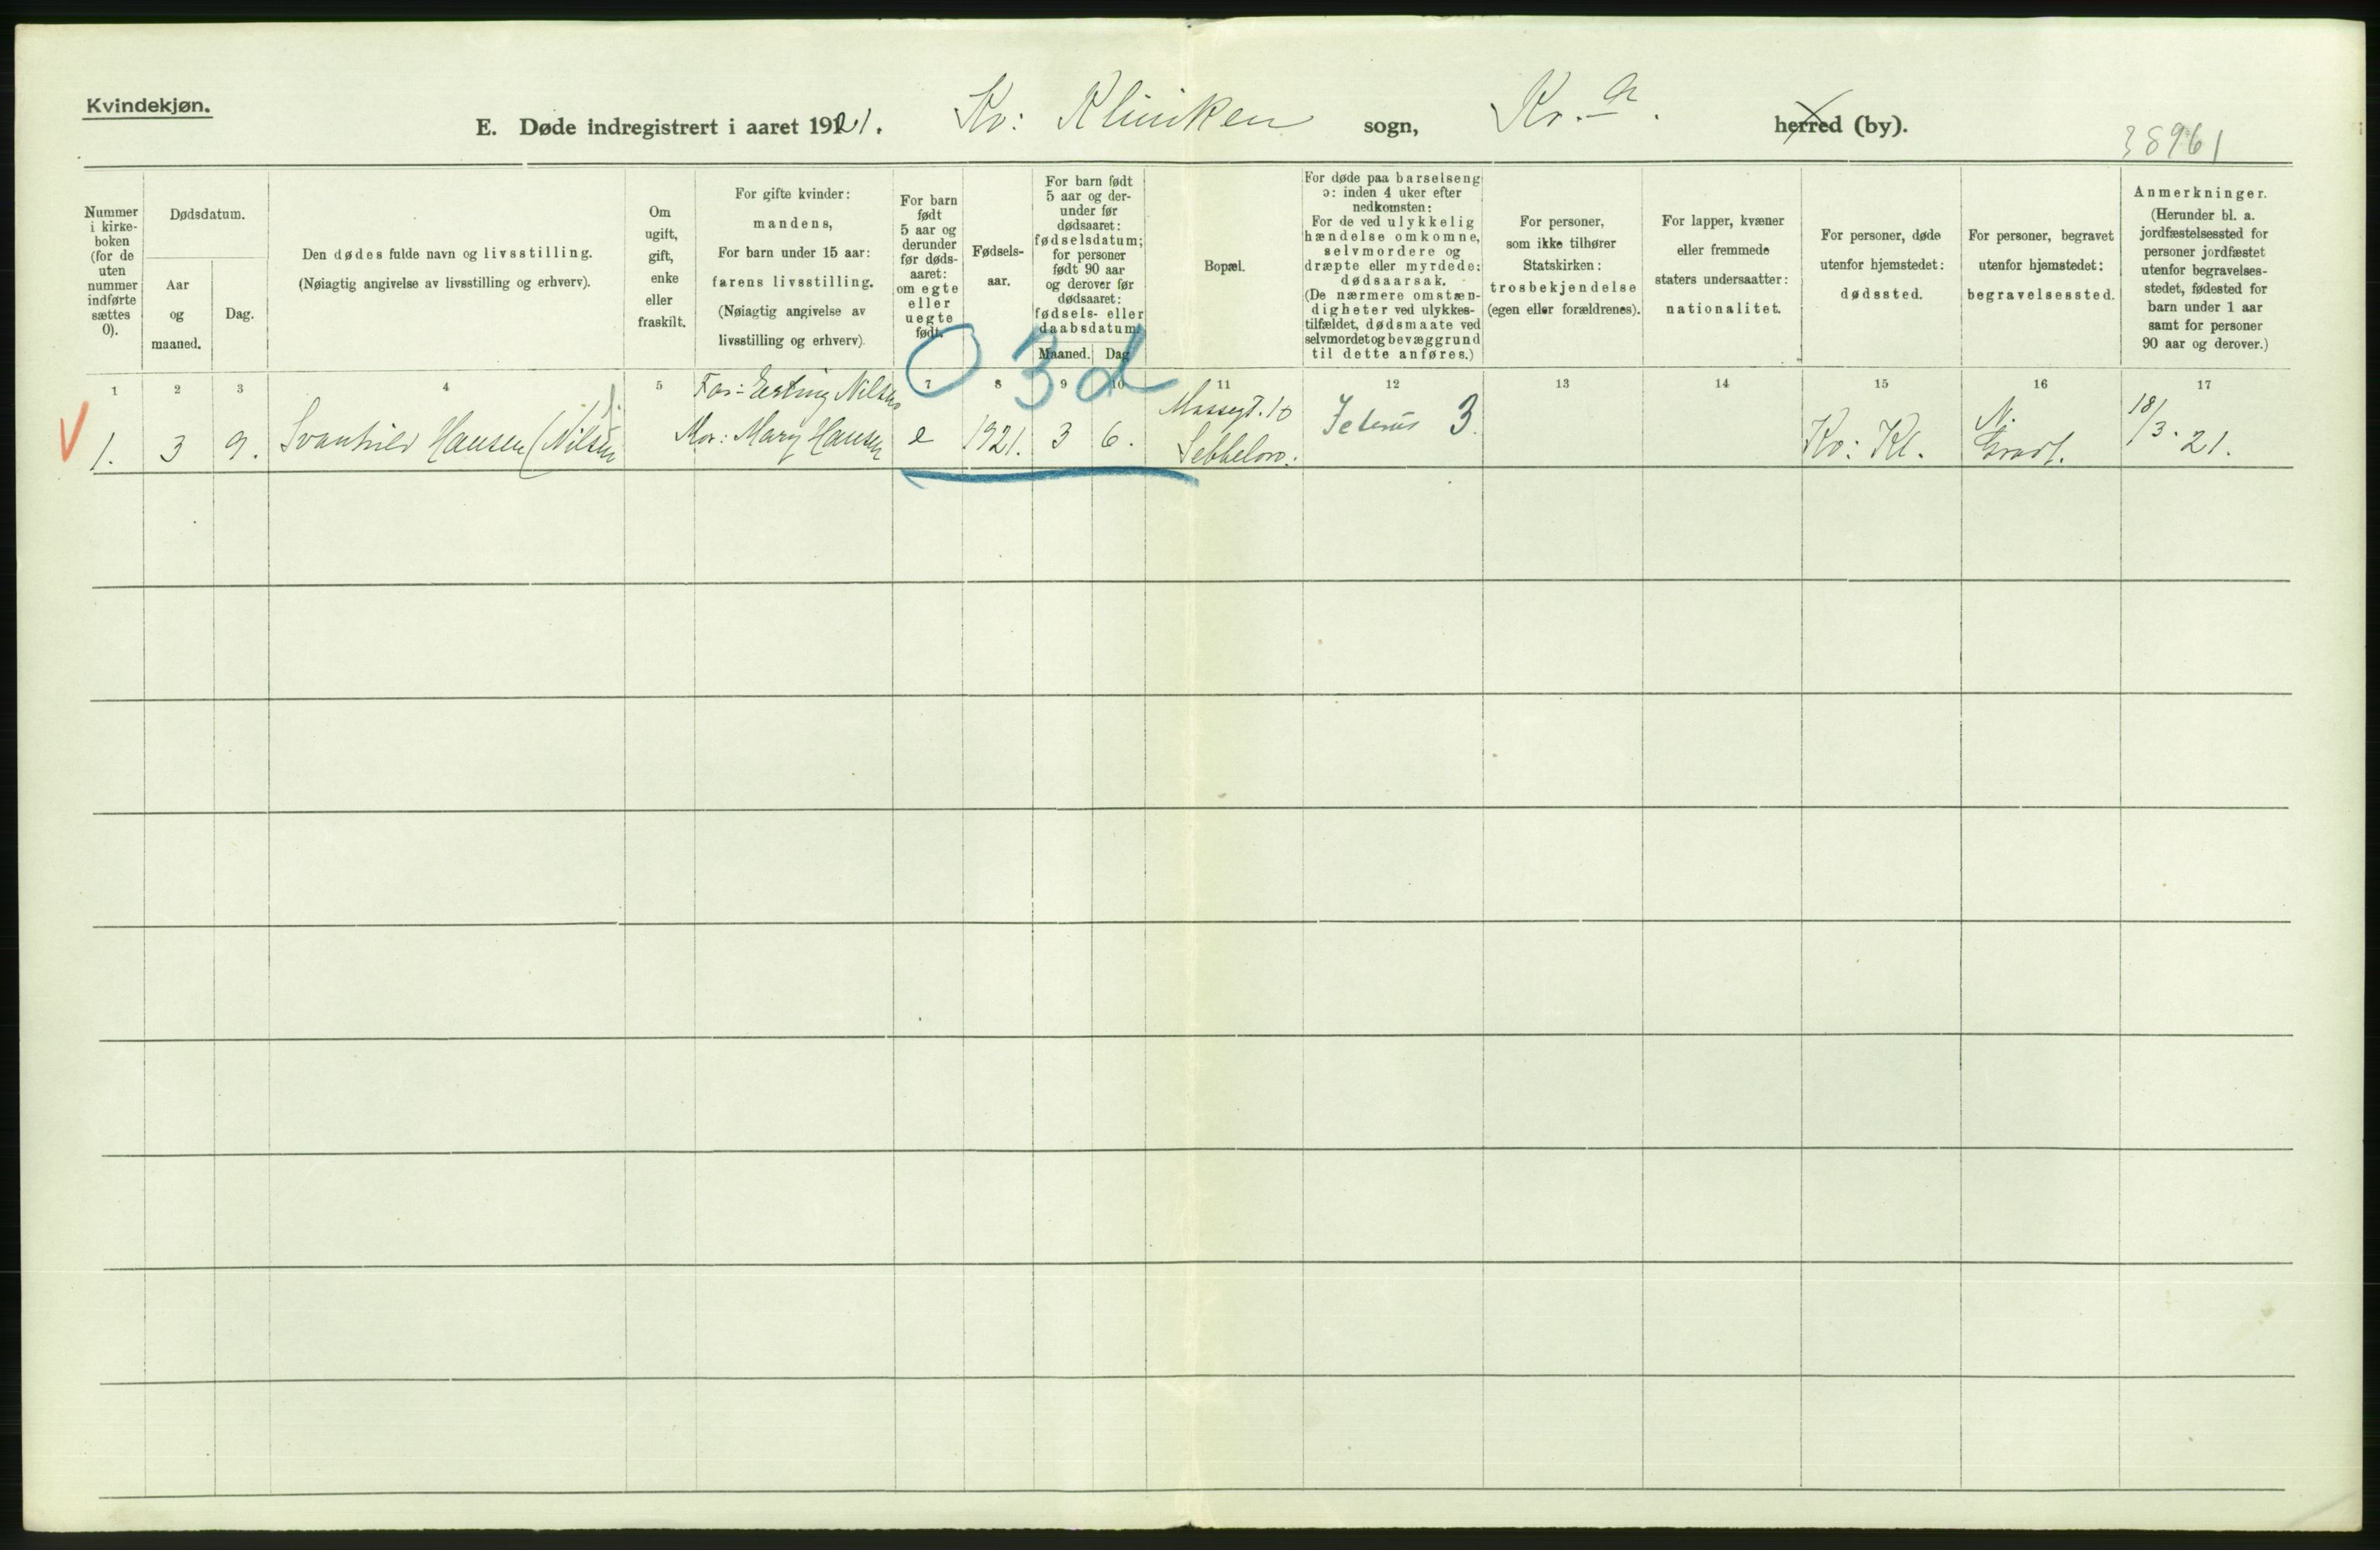 Kvindekjøn.
E. Døde indregistrert i aaret 1921. Kv: Kliniken sogn, Kr.a. herred (by).
38961
Nummer i kirke- boken (for de uten nummer indførte sættes 0).
Dødsdatum.
Aar og maaned.
Dag.
Den dødes fulde navn og livsstilling.
(Nøiagtig angivelse av livsstilling og erhverv).
Om ugift, gift, enke eller fraskilt.
For gifte kvinder:
mandens,
For barn under 15 aar:
farens livsstilling.
(Nøiagtig angivelse av
livsstilling og erhverv)
For barn født 5 aar og derunder før døds- aaret: om egte eller uegte født.
Fødsels- aar.
For barn født 5 aar og der- under før dødsaaret: fødselsdatum; for personer født 90 aar og derover før dødsaaret: fødsels- eller daabsdatum.
Maaned. Dag
Bopæl.
For døde paa barselseng
ɔ: inden 4 uker efter
nedkomsten:
For de ved ulykkelig
hændelse omkomne,
selvmordere og
dræpte eller myrdede:
dødsaarsak.
(De nærmere omstæn-
digheter ved ulykkes-
tilfældet, dødsmaate ved
selvmordet og bevæggrund
til dette anføres.)
For personer,
som ikke tilhører
Statskirken:
trosbekjendelse
(egen eller forældrenes).
For lapper, kvæner
eller fremmede
staters undersaatter:
nationalitet.
For personer, døde
utenfor hjemstedet:
dødssted.
For personer, begravet
utenfor hjemstedet:
begravelsessted.
Anmerkninger.
(Herunder bl. a.
jordfæstelsessted for
personer jordfæstet
utenfor begravelses-
stedet, fødested for
barn under 1 aar
samt for personer
90 aar og derover.)
0 3 d
1 2 3 4 5 7 8 9 10 11 12 13 14 15 16 17
V 1. 3 9. Svanhild Hansen (Nilsen).
Far: Erling Nilsen
Mor: Mary Hansen
e 1921. 3 6.
10
Icterus 3.
Kv: Kl.
N. Gravl.
18/3. 21.